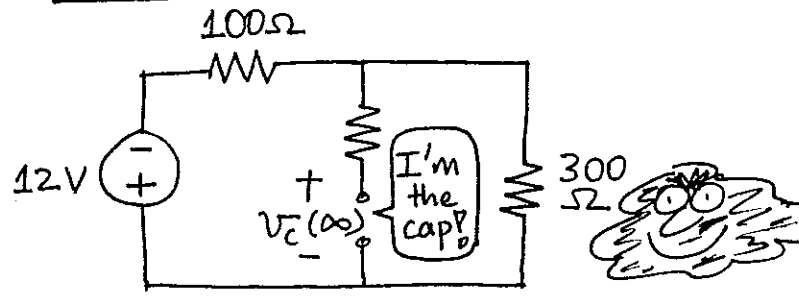 100Ω
12V
-
+
+
v_c(∞)
-
I'm
the
cap!
300
Ω